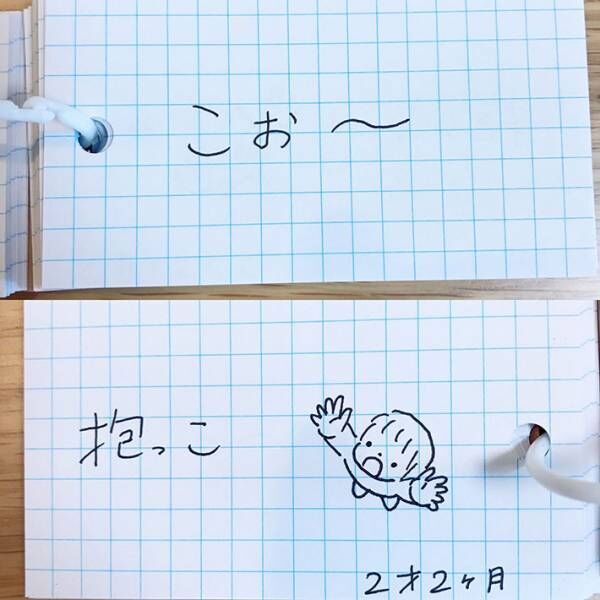 こぉ〜
抱っこ
2才2ヶ月